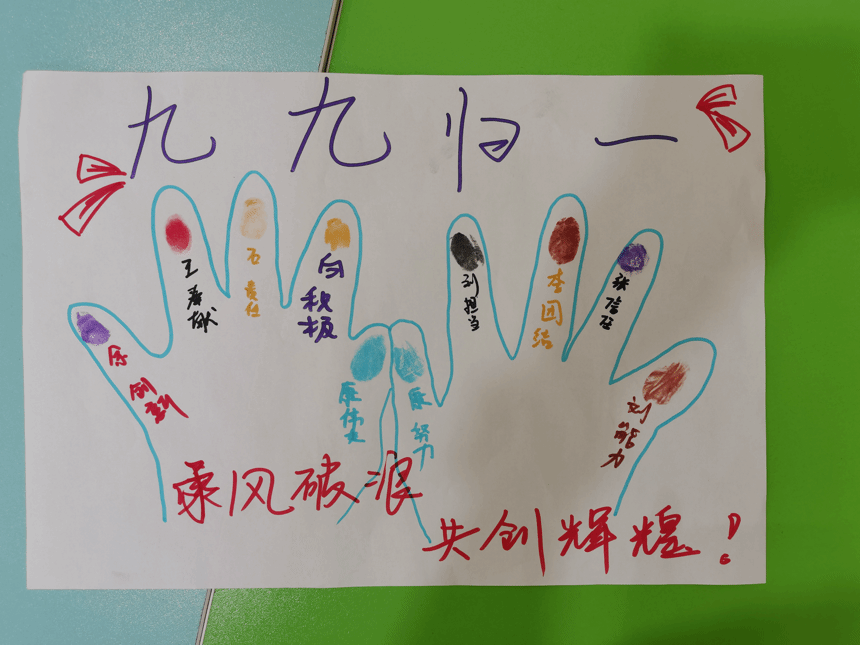 九九归一
乐创新
王奉献
石责任
白积极
康伟大
康努力
刘担当
李团结
张信任
刘能力
乘风破浪
共创辉煌！